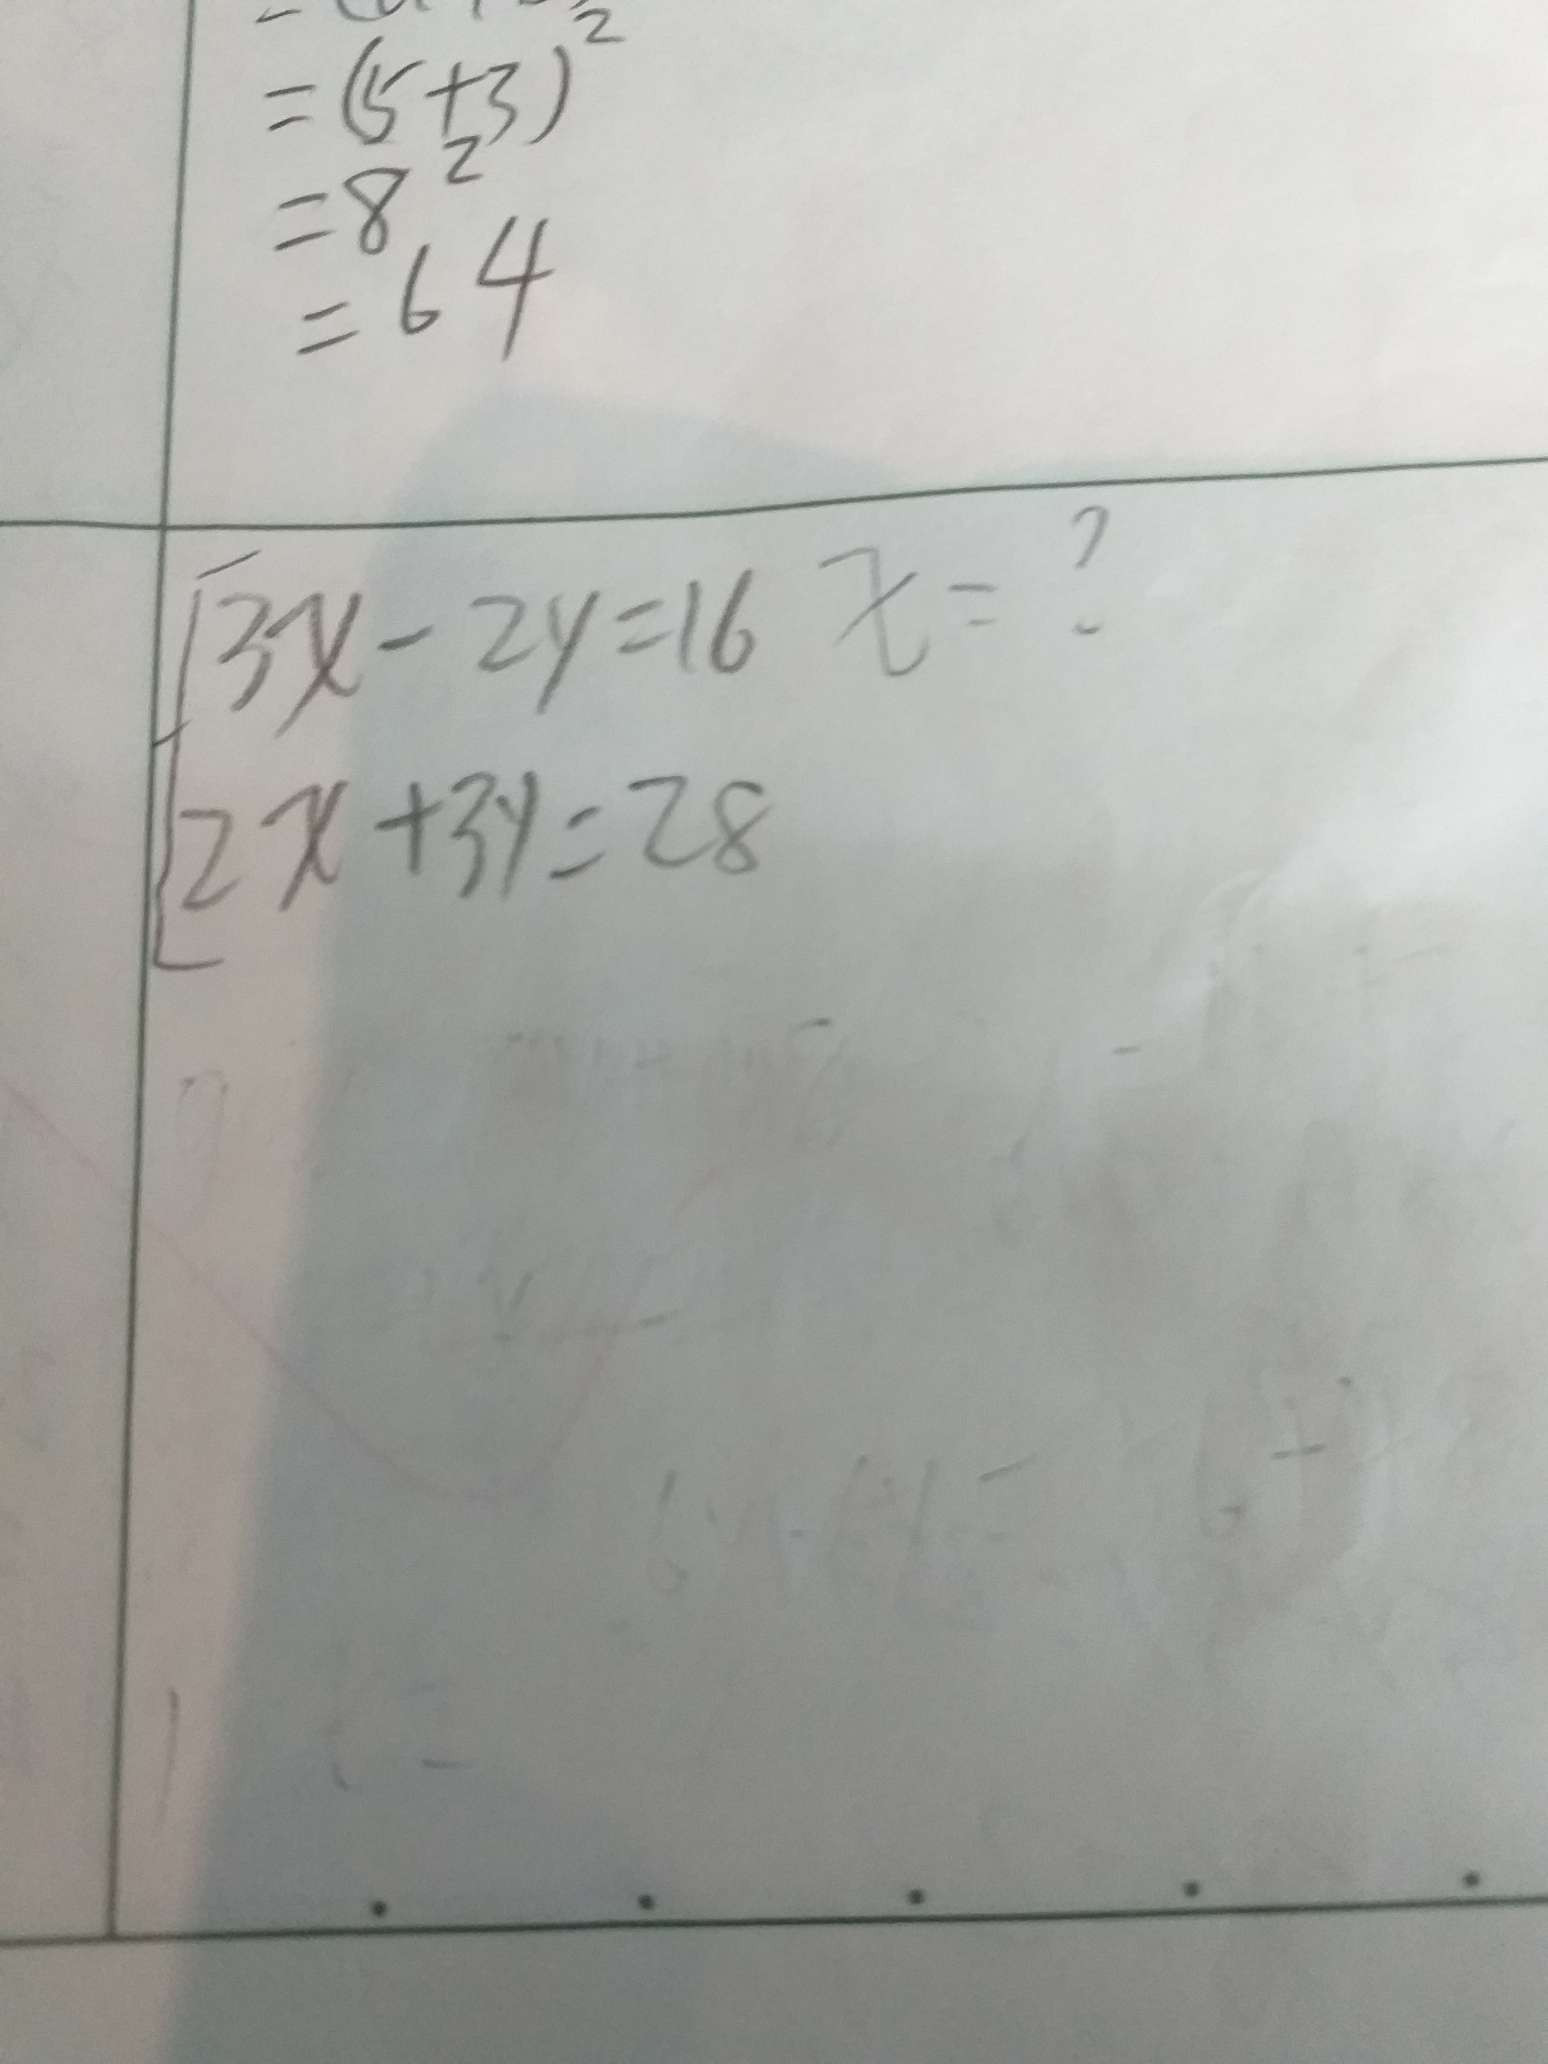 =(5+3)²
=8²
=64
3x-2y=16 x=?
2x+3y=28